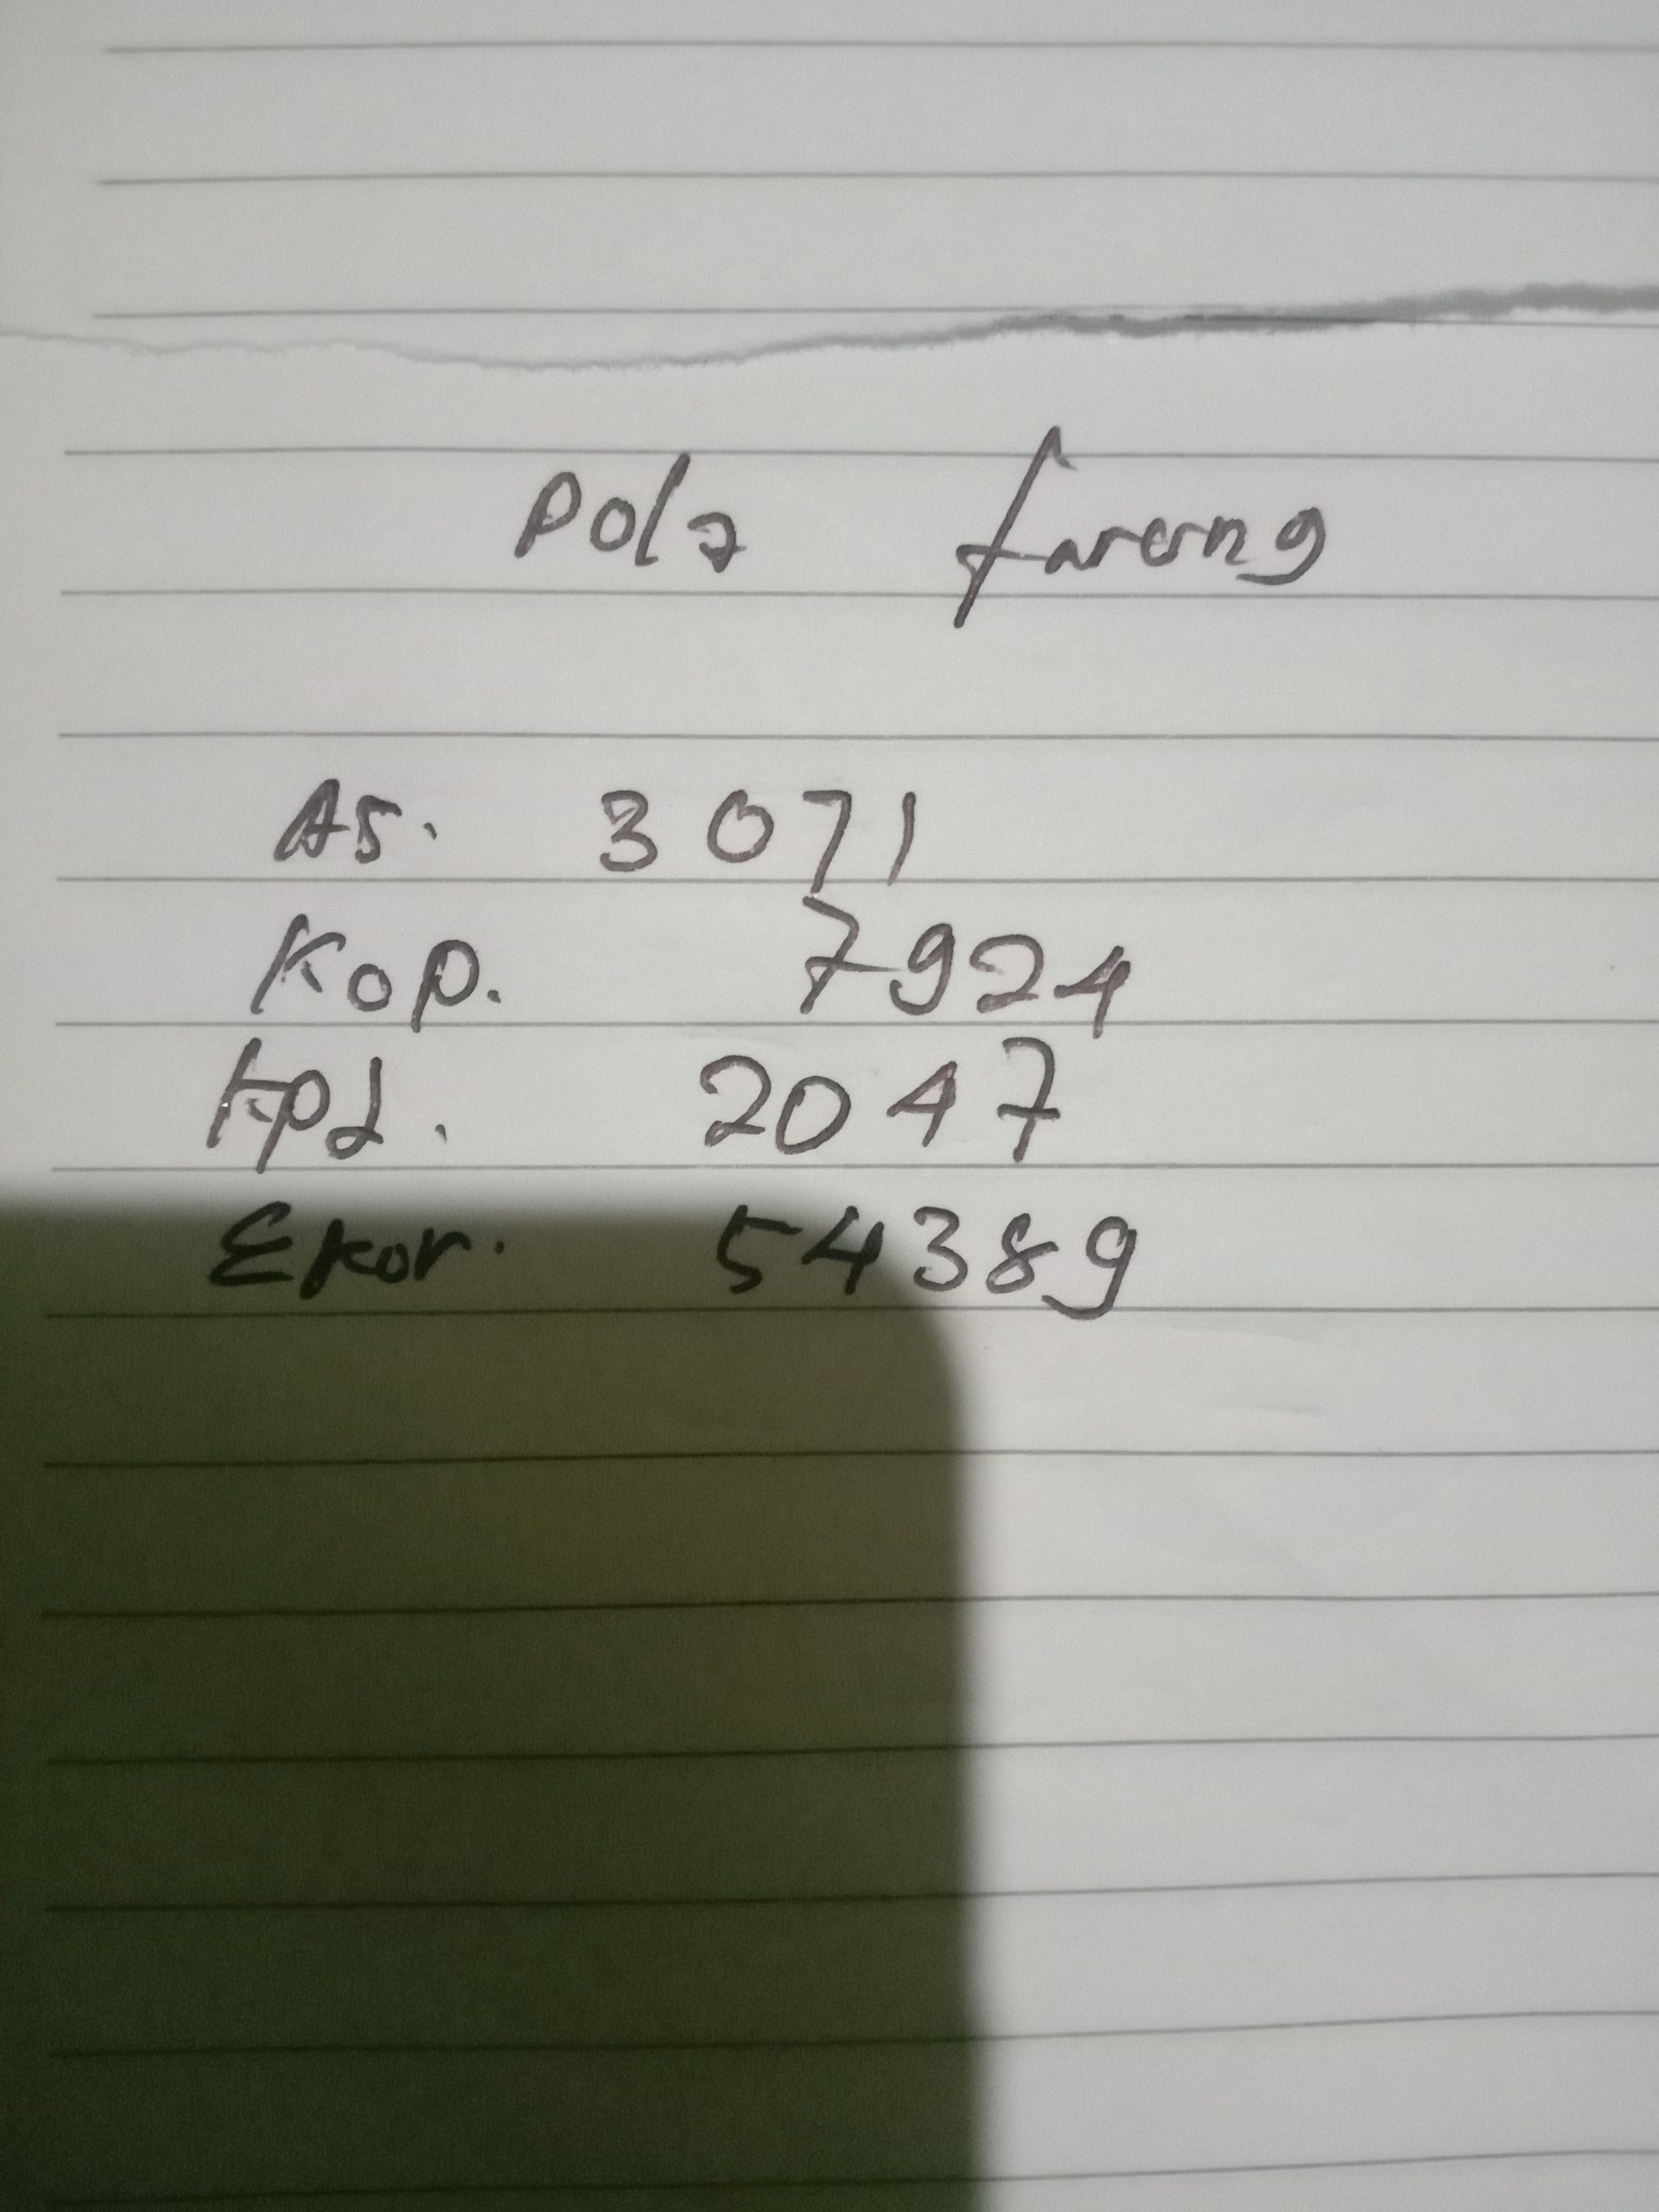 Pola tarung
As. 3071
Kop. 7924
Kpl. 2047
Ekor. 54389